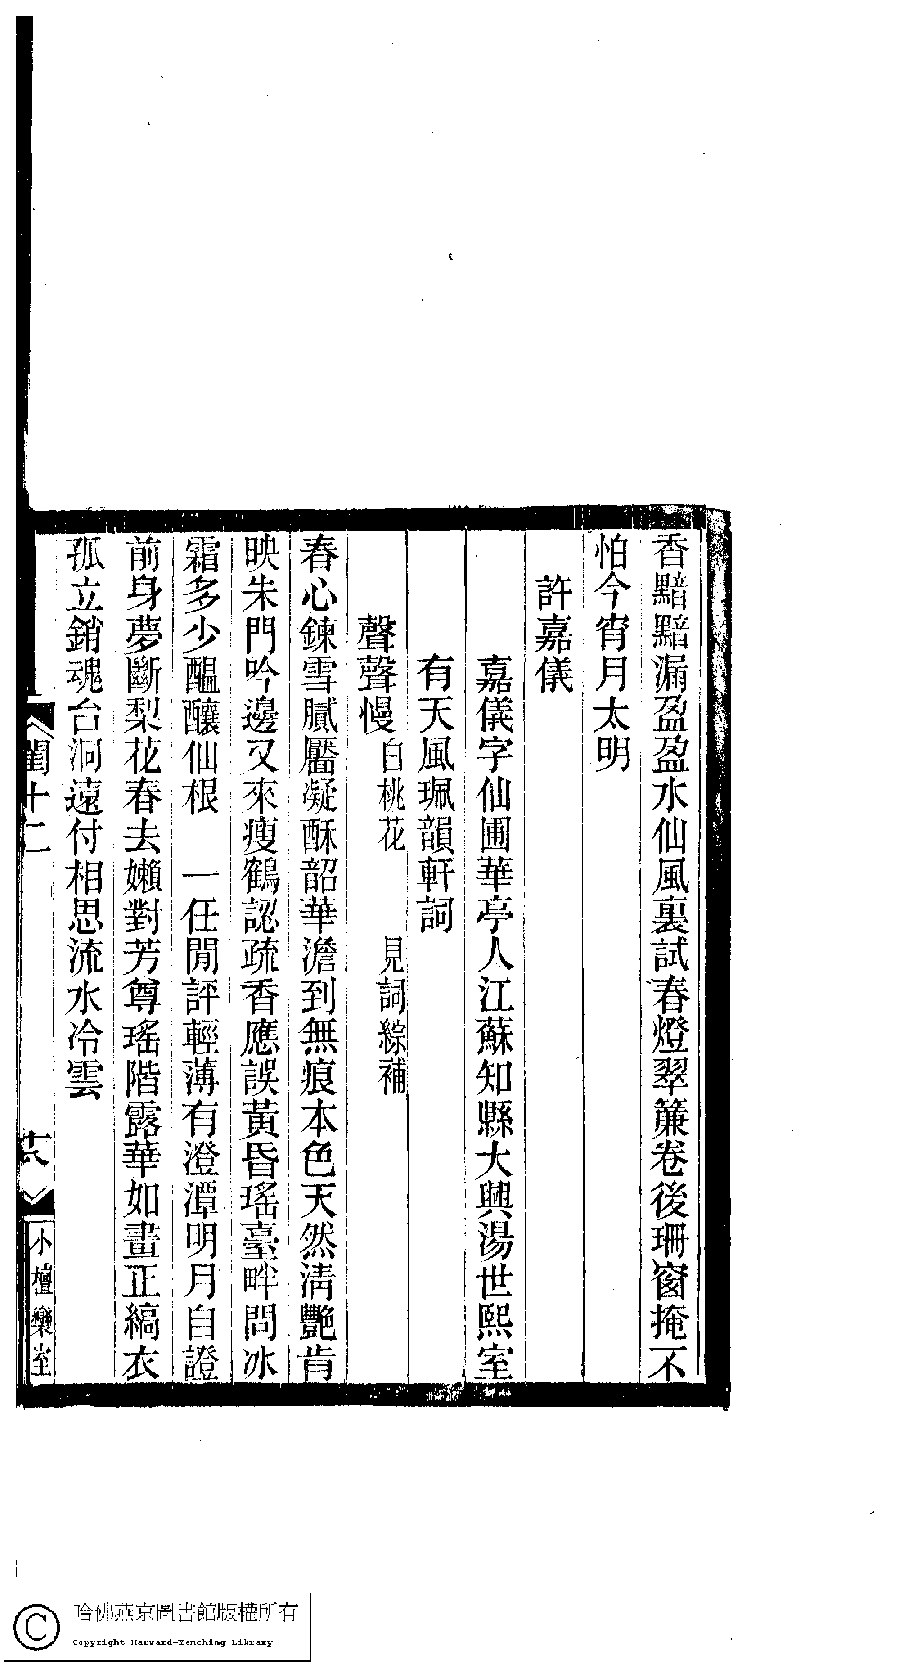 香黯黯漏盈盈水仙風裏試春燈翠簾卷後珊窗掩不
怕今宵月太明
許嘉儀
嘉儀字仙圃華亭人江蘇知縣大興湯世熙室
有天風珮韻軒詞
聲聲慢 白桃花 見詞綜補
春心鍊雪膩靨凝酥韶華澹到無痕本色天然淸艷肯
映朱門吟邊又來瘦鶴認疏香應誤黃昏瑤臺畔問冰
霜多少醞釀仙根 一任閒評輕薄有澄潭明月自證
前身夢斷梨花春去嬾對芳尊瑤階露華如畫正縞衣
孤立銷魂台洞遠付相思流水冷雲
閨十二
十八
小檀欒室
哈佛燕京圖書館版權所有
Copyright Harvard-Yenching Library